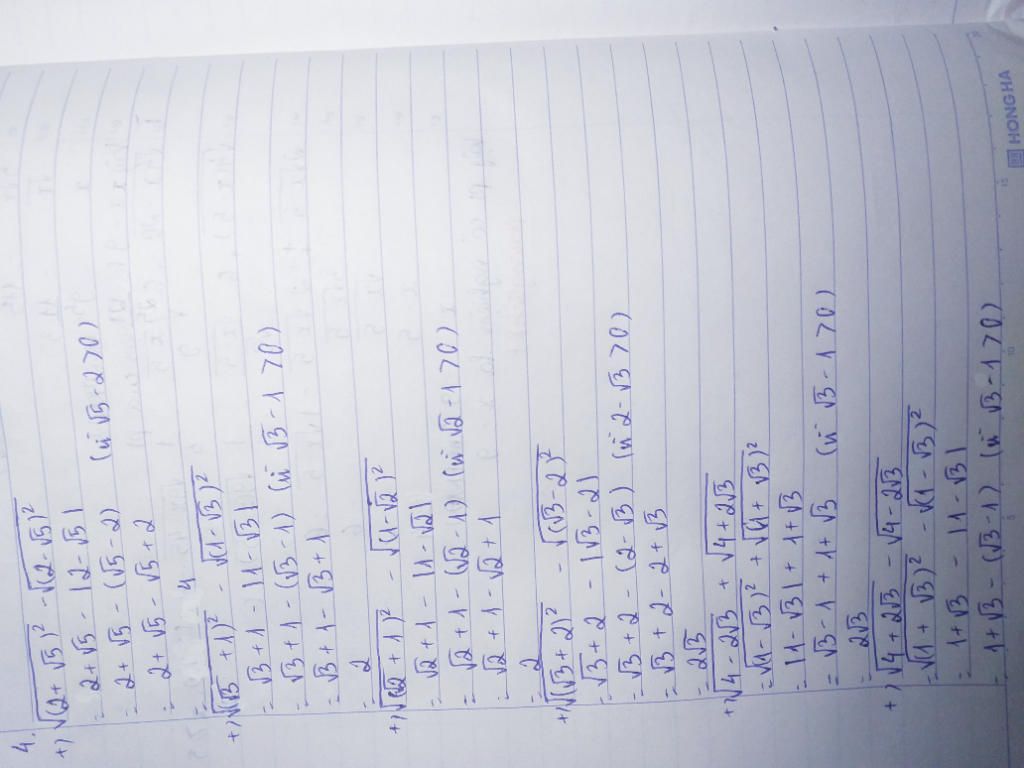 4.
+) √(2+√5)² - √(2-√5)²
= 2+√5 - |2-√5|
= 2+√5 - (√5-2) (vì √5-2>0)
= 2+√5 - √5+2
= 4
+) √(√3+1)² - √(1-√3)²
= √3+1 - |1-√3|
= √3+1 - (√3-1) (vì √3-1>0)
= √3+1 - √3+1
= 2
+) √(√2+1)² - √(1-√2)²
= √2+1 - |1-√2|
= √2+1 - (√2-1) (vì √2-1>0)
= √2+1 - √2+1
= 2
+) √(√3+2)² - √(√3-2)²
= √3+2 - |√3-2|
= √3+2 - (2-√3) (vì 2-√3>0)
= √3+2-2+√3
= 2√3
+) √4-2√3 + √4+2√3
= √(1-√3)² + √(1+√3)²
= |1-√3| + 1+√3
= √3-1 + 1+√3 (vì √3-1>0)
= 2√3
+) √4+2√3 - √4-2√3
= √(1+√3)² - √(1-√3)²
= 1+√3 - |1-√3|
= 1+√3 - (√3-1) (vì √3-1>0)
HONG HA
5
10
15